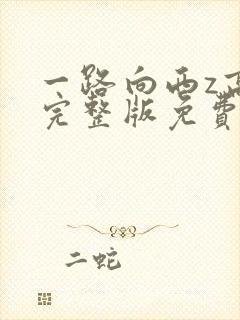 一路向西z高
完整版免费
二蛇